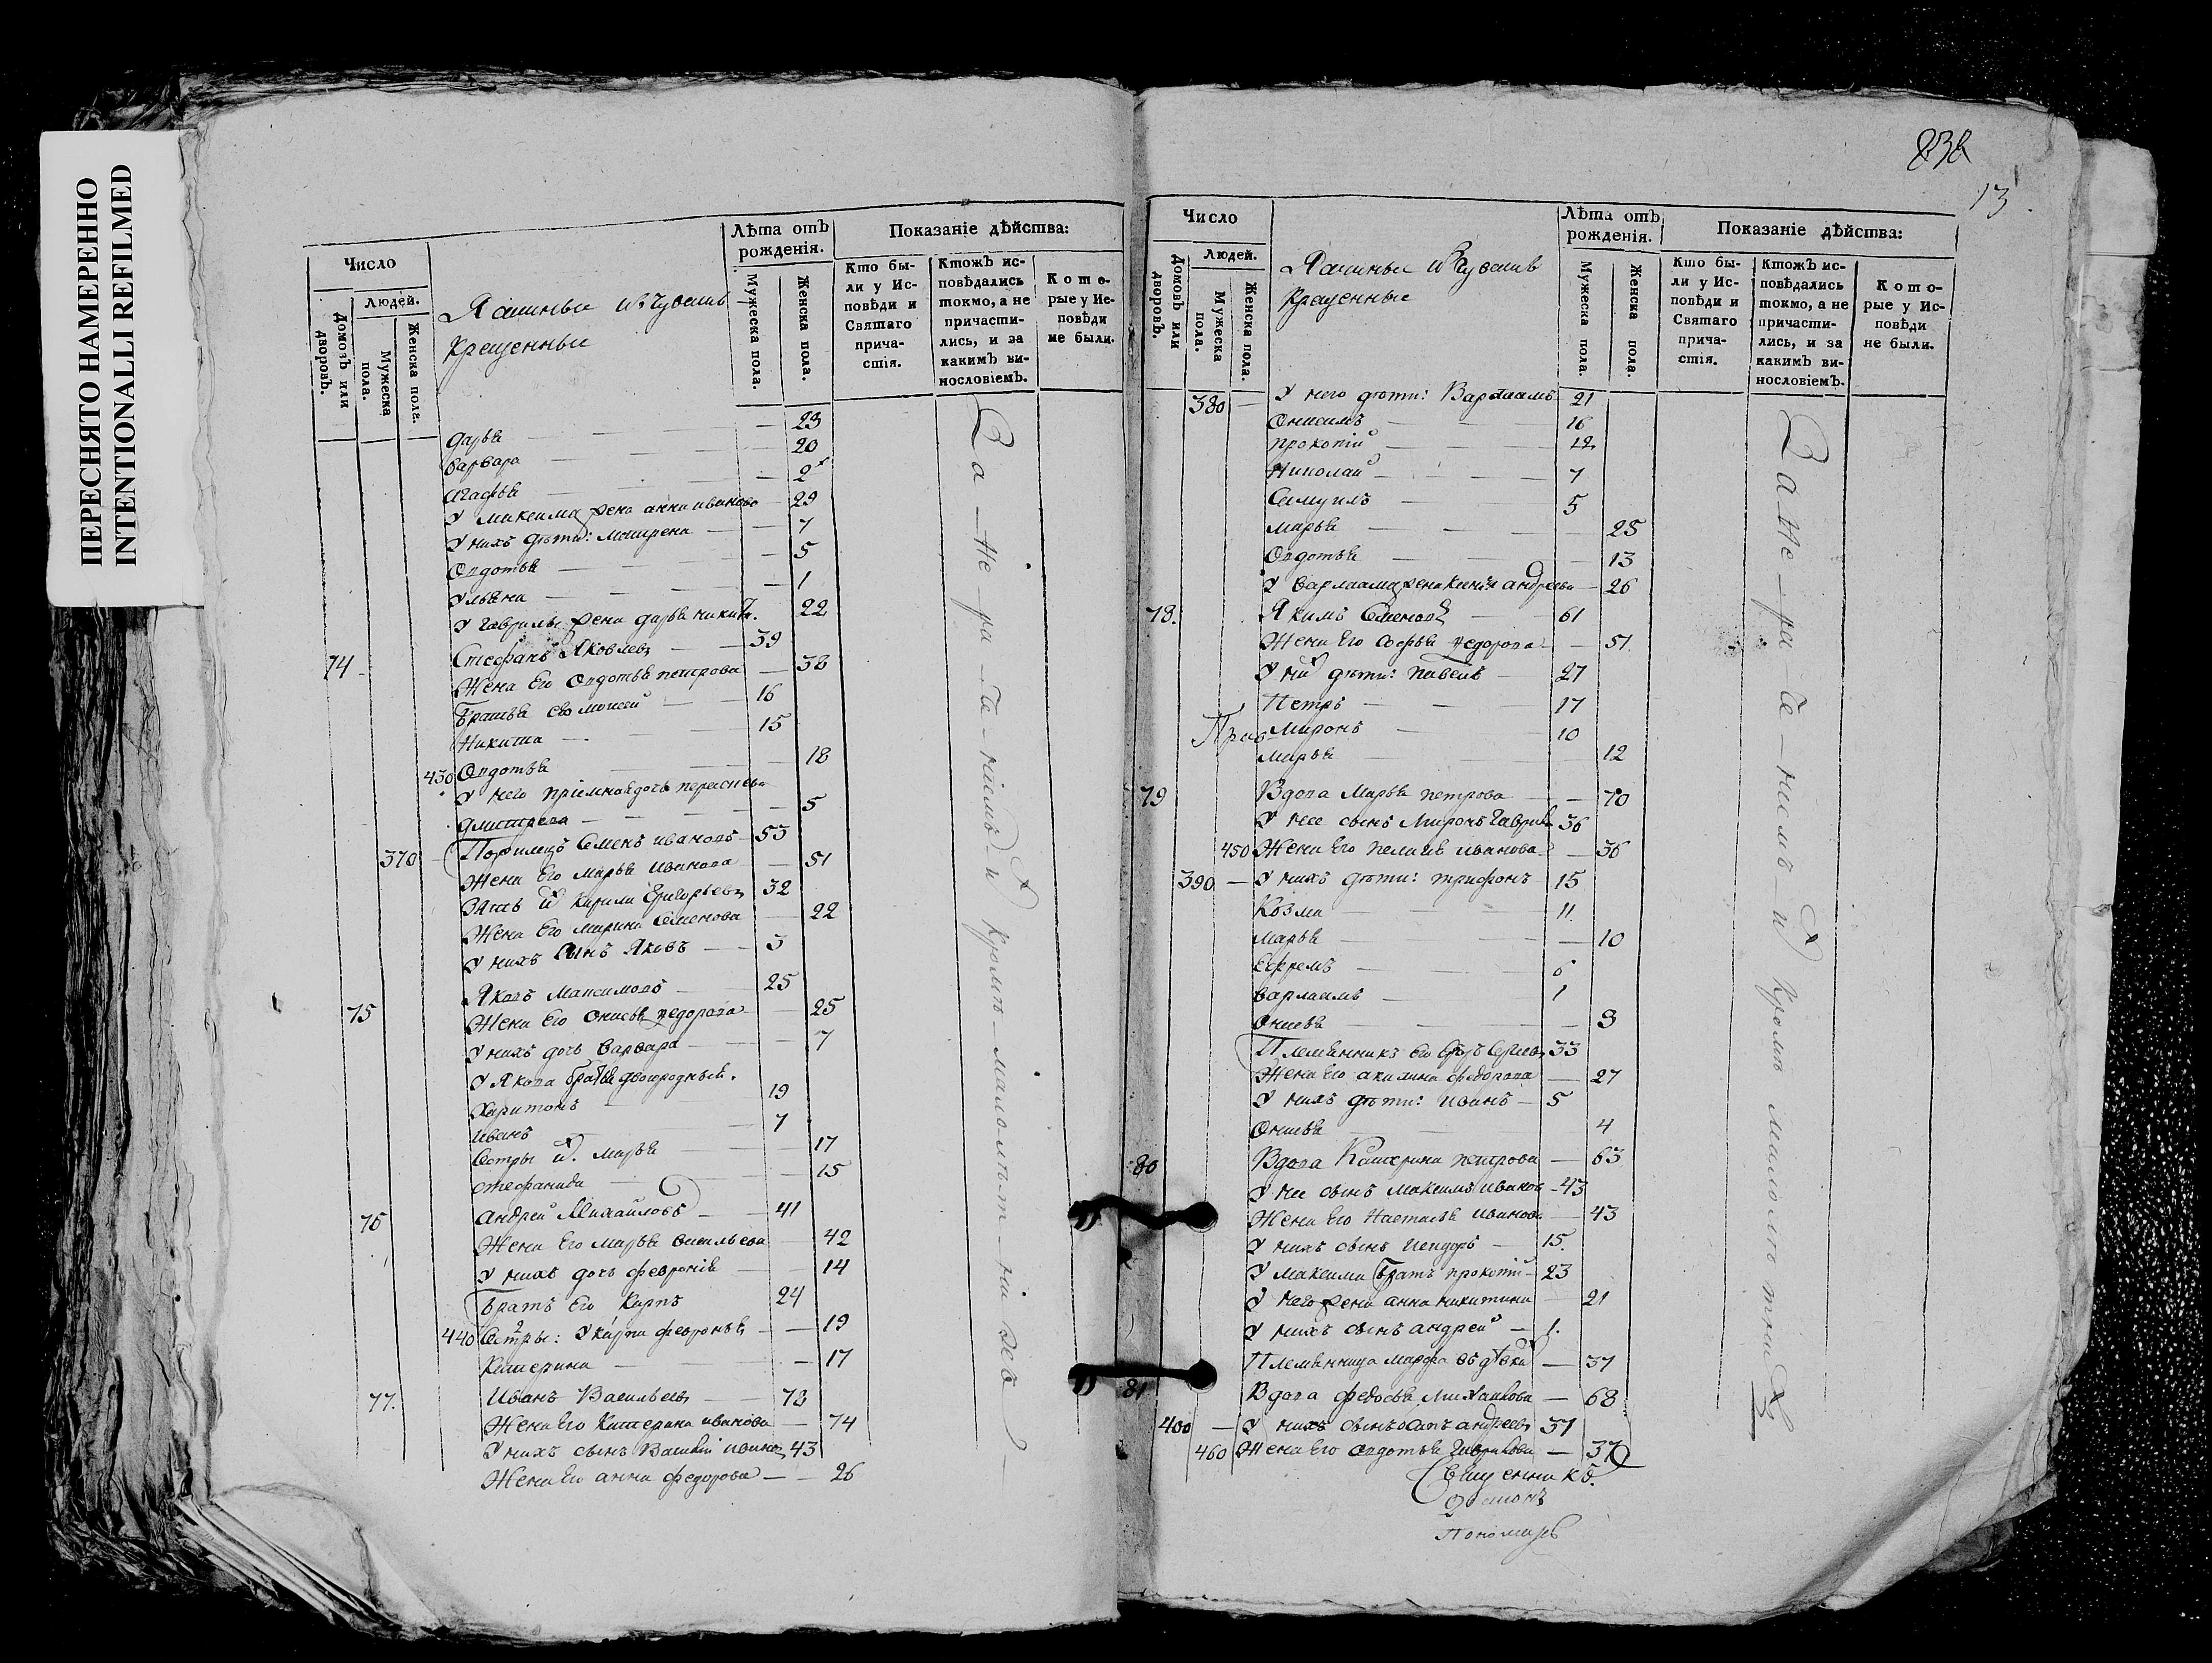 ПЕРЕСНЯТО НАМЕРЕННО
INTENTIONALLI REFILMED
Число
Людей.
Домовъ или дворовъ.
Мужеска пола.
Женска пола.
Ясашныи изЧувашъ
Крещенныи
Лѣта отъ рожденія.
Мужеска пола.
Женска пола.
Показаніе дѣйства:
Кто бы-
ли у Ис-
повѣди и
Святаго
прича-
стія.
Ктожъ ис-
повѣдались
токмо, а не
причасти-
лись, и за
какимъ ви-
нословіемъ.
Кото-
рые у Ис-
повѣди
не были.
дарья 23
варвара 20
агафья 2
У максима жена анна иванова 29
У нихъ дѣти: матрена 7
Овдотья 5
Ульяна 1
У гаврилы жена дарья никит. 22
74 Стефанъ Яковлевъ 39
Жена Его Овдотья петрова 38
Братья его моисей 16
Никита 15
430 Овдотья 18
У него пріемная дочь
дмитрева 5
370 Семенъ ивановъ 53
Жена Его марья Иванова 51
Зять их кирила Григорьевъ 32
Жена Его марина семенова 22
У нихъ сынъ Яковъ 3
75 Яковъ Максимовъ 25
Жена Его Онисья федорова 25
У нихъ дочь варвара 7
У Якова братья двоюродныи.
Харитонъ 19
Иванъ 7
Сестры их. марья 17
стефанида 15
76 андрей Михайловъ 41
Жена Его марья васильева 42
У нихъ дочь февронія 14
Братъ Его Карпъ 24
440 Сестры: У карпа февронья 19
Катерина 17
77. Иванъ Васильевъ 73
Жена Его Катерина иванова 74
У нихъ сынъ Василій ивановъ 43
Жена Его анна федорова 26
За-не-ра-де-ніемъ их кромѣ-малолѣт-ни-хъ
832
13
Число
Людей.
Домовъ или дворовъ.
Мужеска пола.
Женска пола.
Ясашныи изЧувашъ
Крещенныи
Лѣта отъ рожденія.
Мужеска пола.
Женска пола.
Показаніе дѣйства:
Кто бы-
ли у Ис-
повѣди и
Святаго
прича-
стія.
Ктожъ ис-
повѣдались
токмо, а не
причасти-
лись, и за
какимъ ви-
нословіемъ.
Кото-
рые у Ис-
повѣди
не были.
380 У него дѣти: Варлаамъ 21
Онисимъ 16
прокопій 12
Николай 7
Самуилъ 5
марья 25
Овдотья 13
У варлаама жена ксенія андреева 26
78. Якимъ Семеновъ 61
Жена Его софья федорова 51
У них дѣти: павелъ 27
Петръ 17
Миронъ 10
марья 12
79 Вдова Марья петрова 70
У нее сынъ Миронъ Гаврил 36
450 Жена Его пелагея иванова 36
390 У нихъ дѣти: трифонъ 15
Козма 11
марья 10
Ефремъ 6
варлаамъ 1
Онисья 3
Племянникъ Его 33
Жена Его акилина федорова 27
У нихъ дѣти: иванъ 5
Онисья 4
80 Вдова Катерина петрова 63
У нее сынъ максимъ иванов 43
Жена Его Настасья иванова 43
У нихъ сынъ 15
У максима братъ прокопій 23
У него жена анна никитина 21
У нихъ сынъ андрей 1.
Племянница марфа 37
81 Вдова федосья михайлова 68
400 У нихъ сынъ андреевъ 37
460 Жена Его овдотья Гаврилова 37
За-не-ра-де-ніемъ-их кромѣ малолѣтних
Священникъ
Пономарь